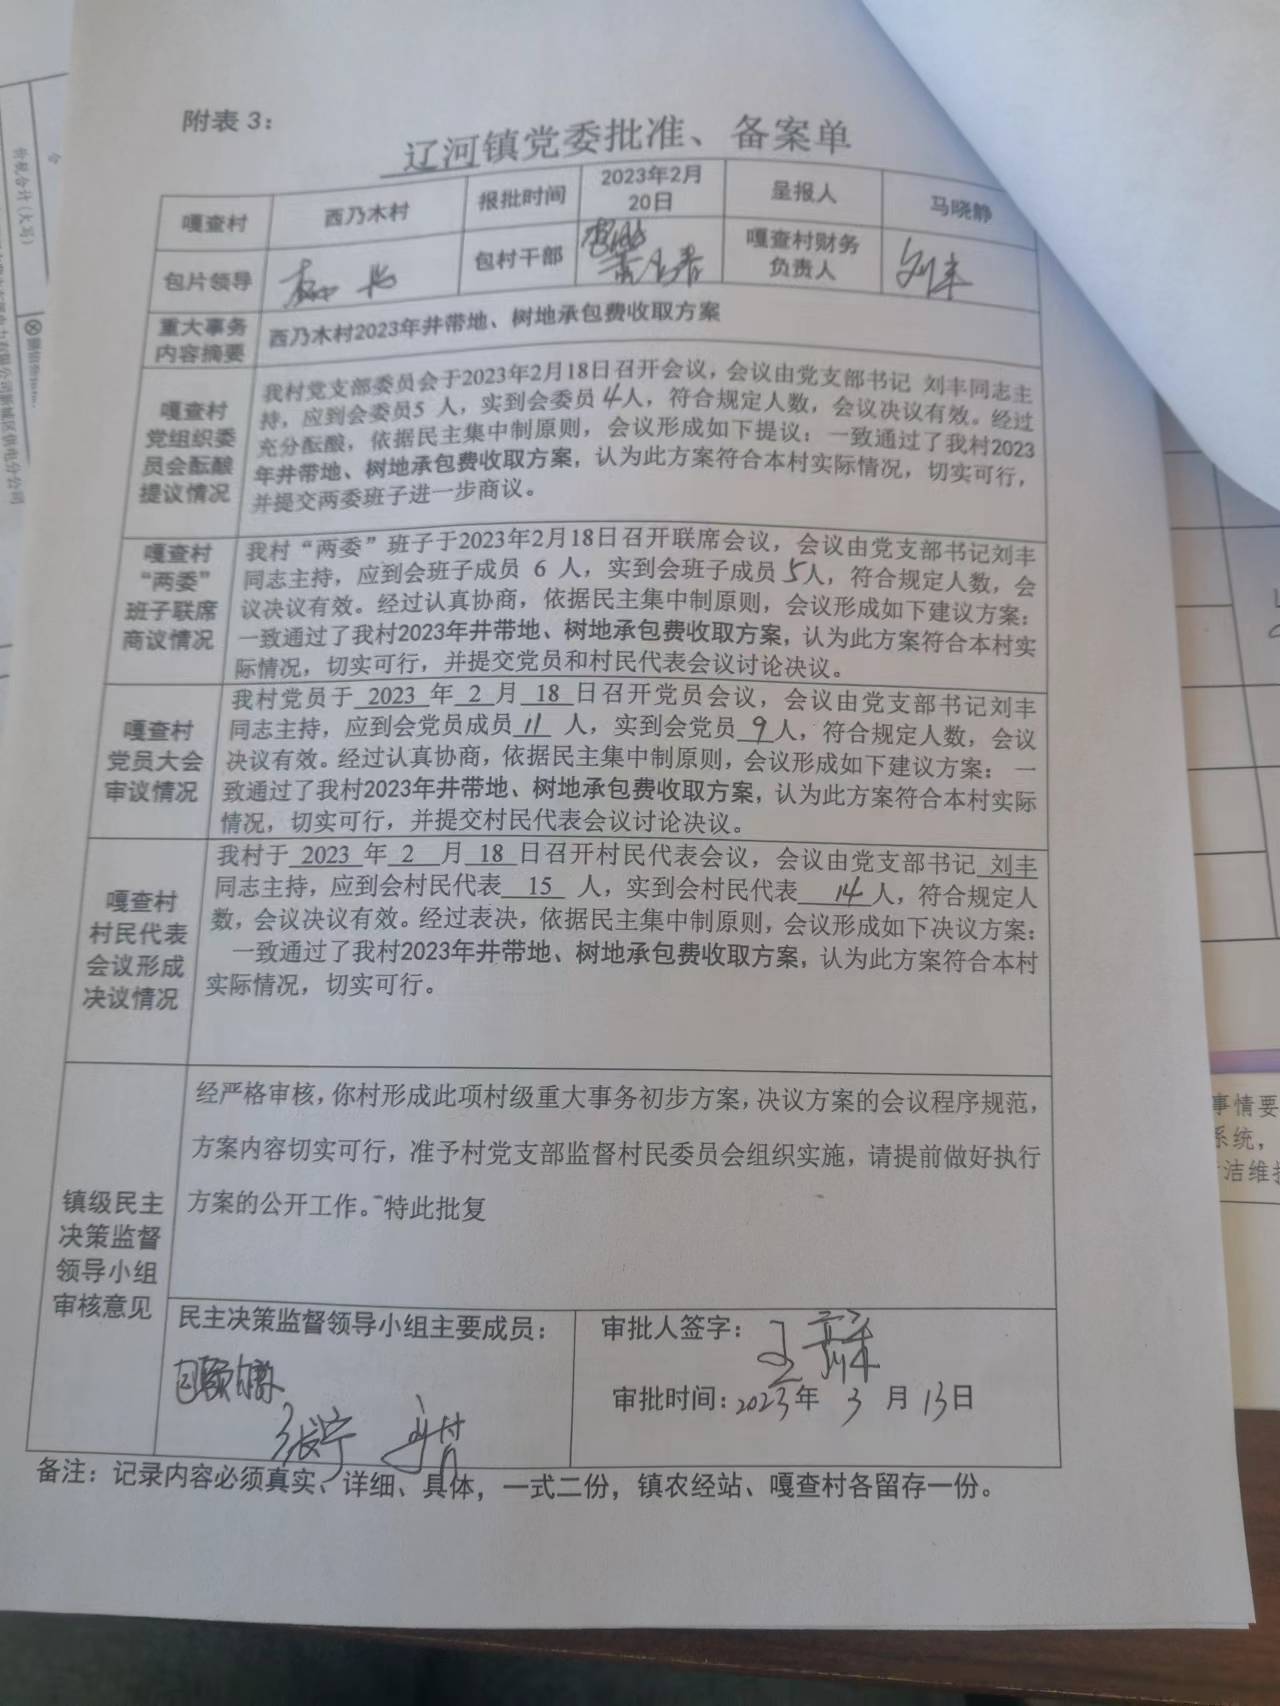 附表3：
辽河镇党委批准、备案单
嘎查村 西乃木村 报批时间 2023年2月20日 呈报人 马晓静
包片领导 包村干部 嘎查村财务负责人 刘丰
重大事务内容摘要 西乃木村2023年井带地、树地承包费收取方案
嘎查村党组织委员会酝酿提议情况
我村党支部委员会于2023年2月18日召开会议，会议由党支部书记 刘丰同志主
持，应到会委员5 人，实到会委员4人，符合规定人数，会议决议有效。经过
充分酝酿，依据民主集中制原则，会议形成如下提议：一致通过了我村2023
年井带地、树地承包费收取方案，认为此方案符合本村实际情况，切实可行，
并提交两委班子进一步商议。
嘎查村“两委”班子联席商议情况
我村“两委”班子于2023年2月18日召开联席会议，会议由党支部书记刘丰
同志主持，应到会班子成员 6 人，实到会班子成员5人，符合规定人数，会
议决议有效。经过认真协商，依据民主集中制原则，会议形成如下建议方案：
一致通过了我村2023年井带地、树地承包费收取方案，认为此方案符合本村实
际情况，切实可行，并提交党员和村民代表会议讨论决议。
嘎查村党员大会审议情况
我村党员于 2023 年 2 月 18 日召开党员会议，会议由党支部书记刘丰
同志主持，应到会党员成员 11 人，实到会党员 9人，符合规定人数，会议
决议有效。经过认真协商，依据民主集中制原则，会议形成如下建议方案： 一
致通过了我村2023年井带地、树地承包费收取方案，认为此方案符合本村实际
情况，切实可行，并提交村民代表会议讨论决议。
嘎查村村民代表会议形成决议情况
我村于 2023 年 2 月 18 日召开村民代表会议，会议由党支部书记 刘丰
同志主持，应到会村民代表 15 人，实到会村民代表 14 人，符合规定人
数，会议决议有效。经过表决，依据民主集中制原则，会议形成如下决议方案：
一致通过了我村2023年井带地、树地承包费收取方案，认为此方案符合本村
实际情况，切实可行。
镇级民主决策监督领导小组审核意见
经严格审核，你村形成此项村级重大事务初步方案，决议方案的会议程序规范，
方案内容切实可行，准予村党支部监督村民委员会组织实施，请提前做好执行
方案的公开工作。特此批复
民主决策监督领导小组主要成员：
张宁
审批人签字：
审批时间：2023年 3 月 13日
备注：记录内容必须真实、详细、具体，一式二份，镇农经站、嘎查村各留存一份。
价税合计（大写）
事情要
系统，
洁维